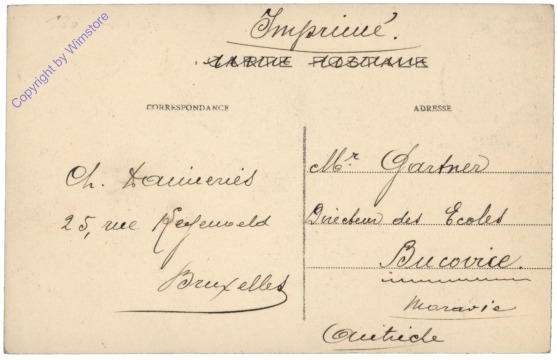 Imprimé.
CARTE POSTALE
CORRESPONDANCE
ADRESSE
Ch. Daimeries
25, rue
Bruxelles
Mr. Gartner
Directeur des Ecoles
Bucovice.
Moravie
Autriche
Copyright by Wimstore